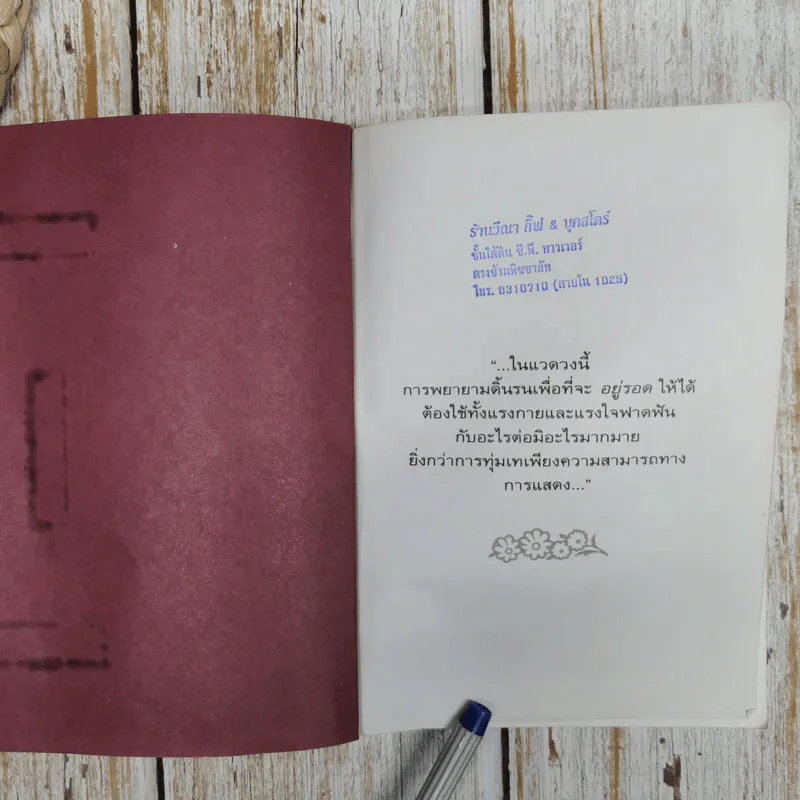 ร้านวีณา กิ๊ฟ & บุคสโตร์
ชั้นใต้ดิน ซี.พี. ทาวเวอร์
ตรงข้ามพิซซาฮัท
โทร. 6310710 (สายใน 1025)
“...ในแวดวงนี้
การพยายามดิ้นรนเพื่อที่จะ อยู่รอด ให้ได้
ต้องใช้ทั้งแรงกายและแรงใจฟาดฟัน
กับอะไรต่อมิอะไรมากมาย
ยิ่งกว่าการทุ่มเทเพียงความสามารถทาง
การแสดง...”